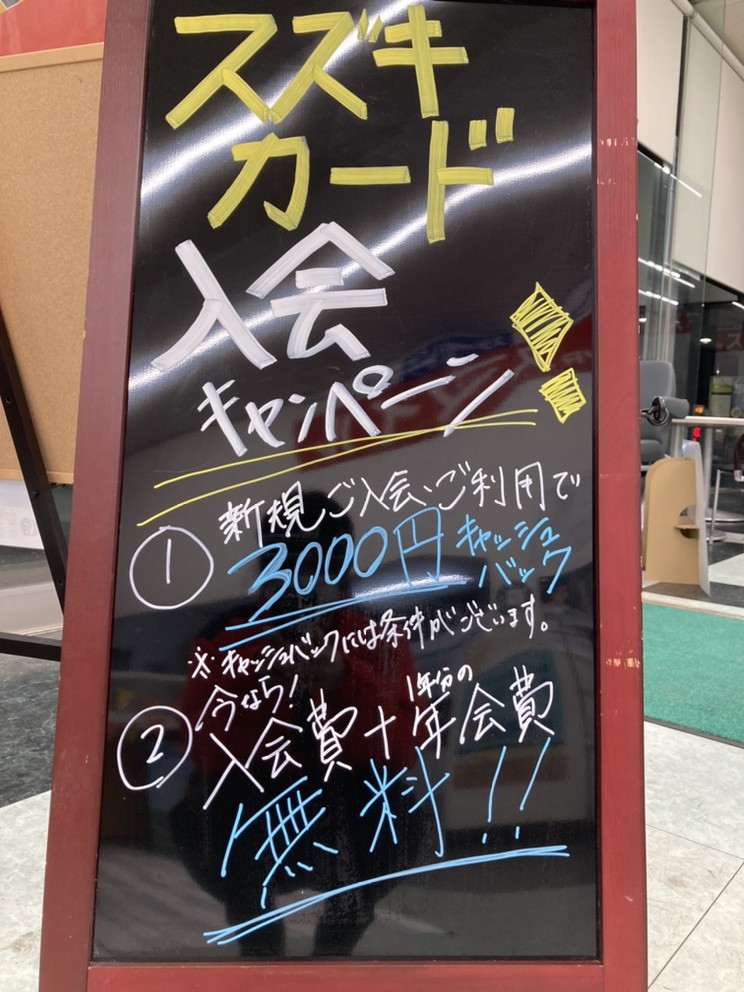 スズキ
カード
入会
キャンペーン
① 新規ご入会、ご利用で
3000円 キャッシュ
バック
※キャッシュバックには条件がございます。
② 今なら!
1年分の
入会費+年会費
無料!!